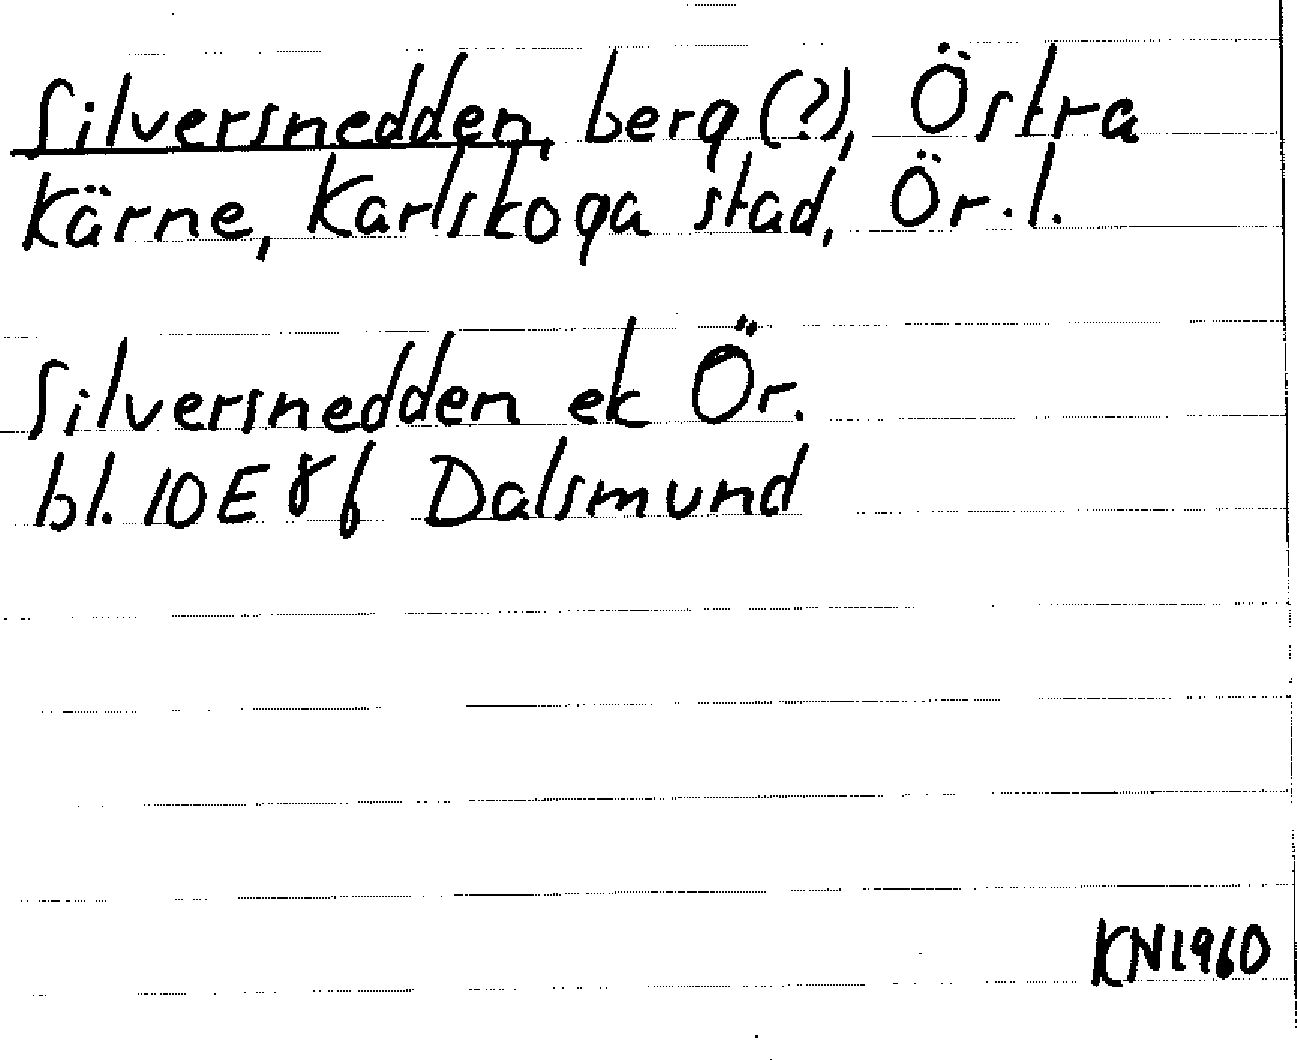 Silversnedden, berg (?), Östra
Kärne, Karlskoga stad, Ör. l.
Silversnedden ek Ör.
bl. 10E8f Dalsmund
KN1960